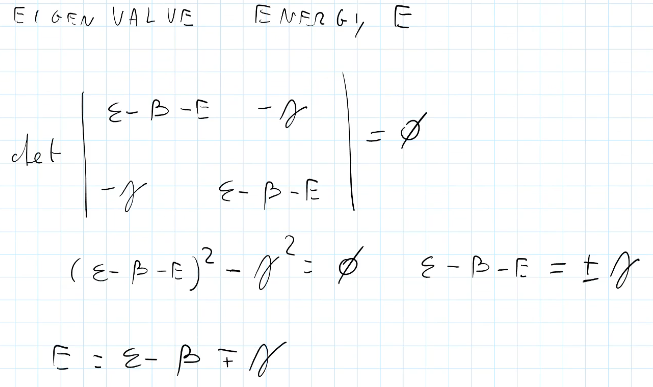 EIGEN VALUE ENERGY, E
det | ε-β-E -γ |
| -γ ε-β-E | = ∅
(ε-β-E)² - γ² = ∅ ε-β-E = ±γ
E = ε-β∓γ